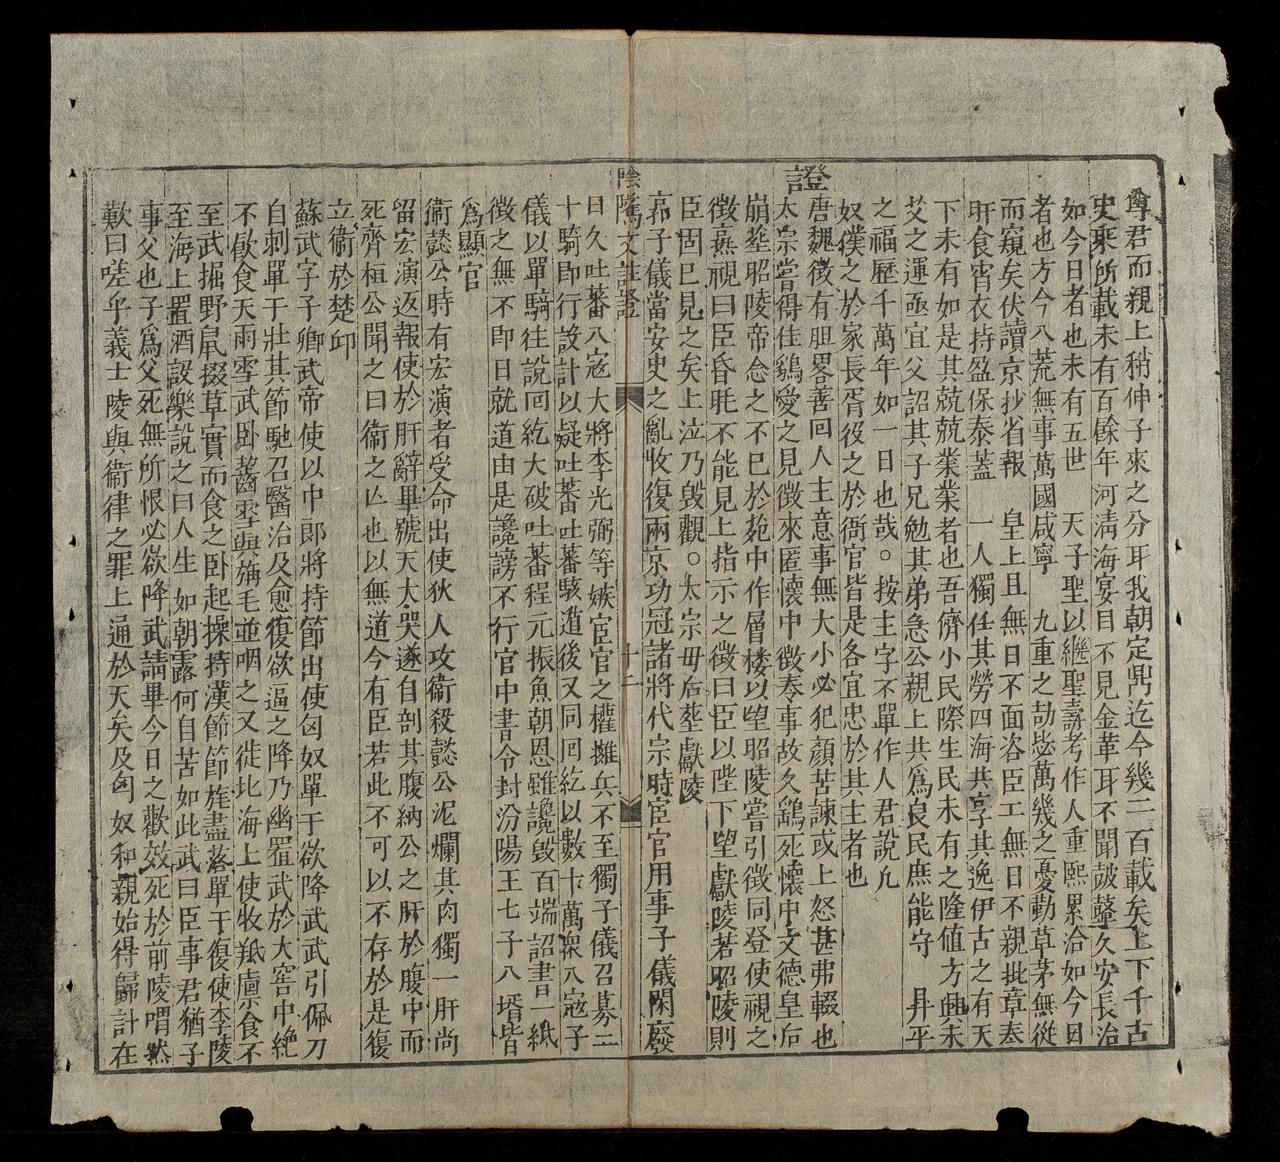 尊君而親上稍伸子來之分耳我朝定鼎迄今幾二百載矣上下千古
史乘所載未有百餘年河清海宴目不見金革耳不聞鼓鼙久安長治
如今日者也未有五世　天子聖以繼聖壽考作人重熙累洽如今日
者也方今八荒無事萬國咸寧　九重之劼毖萬幾之憂勤草茅無從
而窺矣伏讀京抄省報　皇上且無日不面咨臣工無日不親批章奏
旰食宵衣持盈保泰蓋　一人獨任其勞四海共享其逸伊古之有天
下未有如是其兢兢業業者也吾儕小民際生民未有之隆値方興未
艾之運亟宜父詔其子兄勉其弟急公親上共爲良民庶能守　昇平
之福歷千萬年如一日也哉○按主字不單作人君說凢
奴僕之於家長胥役之於衙官皆是各宜忠於其主者也
證
唐魏徵有胆畧善回人主意事無大小必犯顏苦諫或上怒甚弗輟也
太宗嘗得佳鷂愛之見徵來匿懷中徵奏事故久鷂死懷中文德皇后
崩葬昭陵帝念之不已於苑中作層楼以望昭陵嘗引徵同登使視之
徵熟視曰臣昏眊不能見上指示之徵曰臣以陛下望獻陵若昭陵則
臣固已見之矣上泣乃毁觀○太宗毋后葬獻陵
郭子儀當安史之亂收復兩京功冠諸將代宗時宦官用事子儀閑廢
陰隲文註證　十二
日久吐蕃入寇大將李光弼等嫉宦官之權擁兵不至獨子儀召募二
十騎即行設計以疑吐蕃吐蕃駭遁後又同回紇以數十萬衆入寇子
儀以單騎往說回紇大破吐蕃程元振魚朝恩雖讒毀百端詔書一紙
徵之無不即日就道由是讒謗不行官中書令封汾陽王七子八壻皆
爲顯官
衞懿公時有宏演者受命出使狄人攻衞殺懿公泥爛其肉獨一肝尚
留宏演返報使於肝辭畢號天大哭遂自剖其腹納公之肝於腹中而
死齊桓公聞之曰衞之亾也以無道今有臣若此不可以不存於是復
立衞於楚邱
蘇武字子卿武帝使以中郎將持節出使匈奴單于欲降武武引佩刀
自刺單于壯其節馳召醫治及愈復欲逼之降乃幽置武於大窖中絶
不飲食天雨雪武卧齧雪與旃毛並咽之又徙北海上使牧羝廩食不
至武掘野鼠掇草實而食之卧起操持漢節節旄盡落單于復使李陵
至海上置酒設樂說之曰人生如朝露何自苦如此武曰臣事君猶子
事父也子爲父死無所恨必欲降武請畢今日之歡效死於前陵喟然
歎曰嗟乎義士陵與衞律之罪上通於天矣及匈奴和親始得歸計在